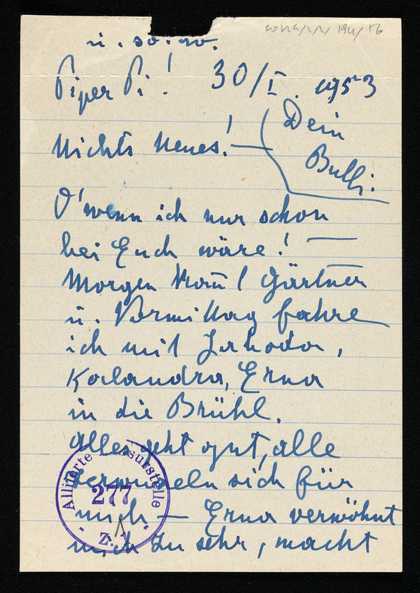 u. so. w.
Piper Pi! 30/I. 1953
Nichts Neues! —
Dein
Bulli.
O' wenn ich nur schon
bei Euch wäre! —
Morgen kommt Gärtner
u. Vormittag fahre
ich mit Jahoda,
Kalandra, Erna
in die Brühl.
Alles geht gut, alle
sich für
mich — Erna verwöhnt
mich zu sehr, macht
Alliierte Zensurstelle
277
Z.